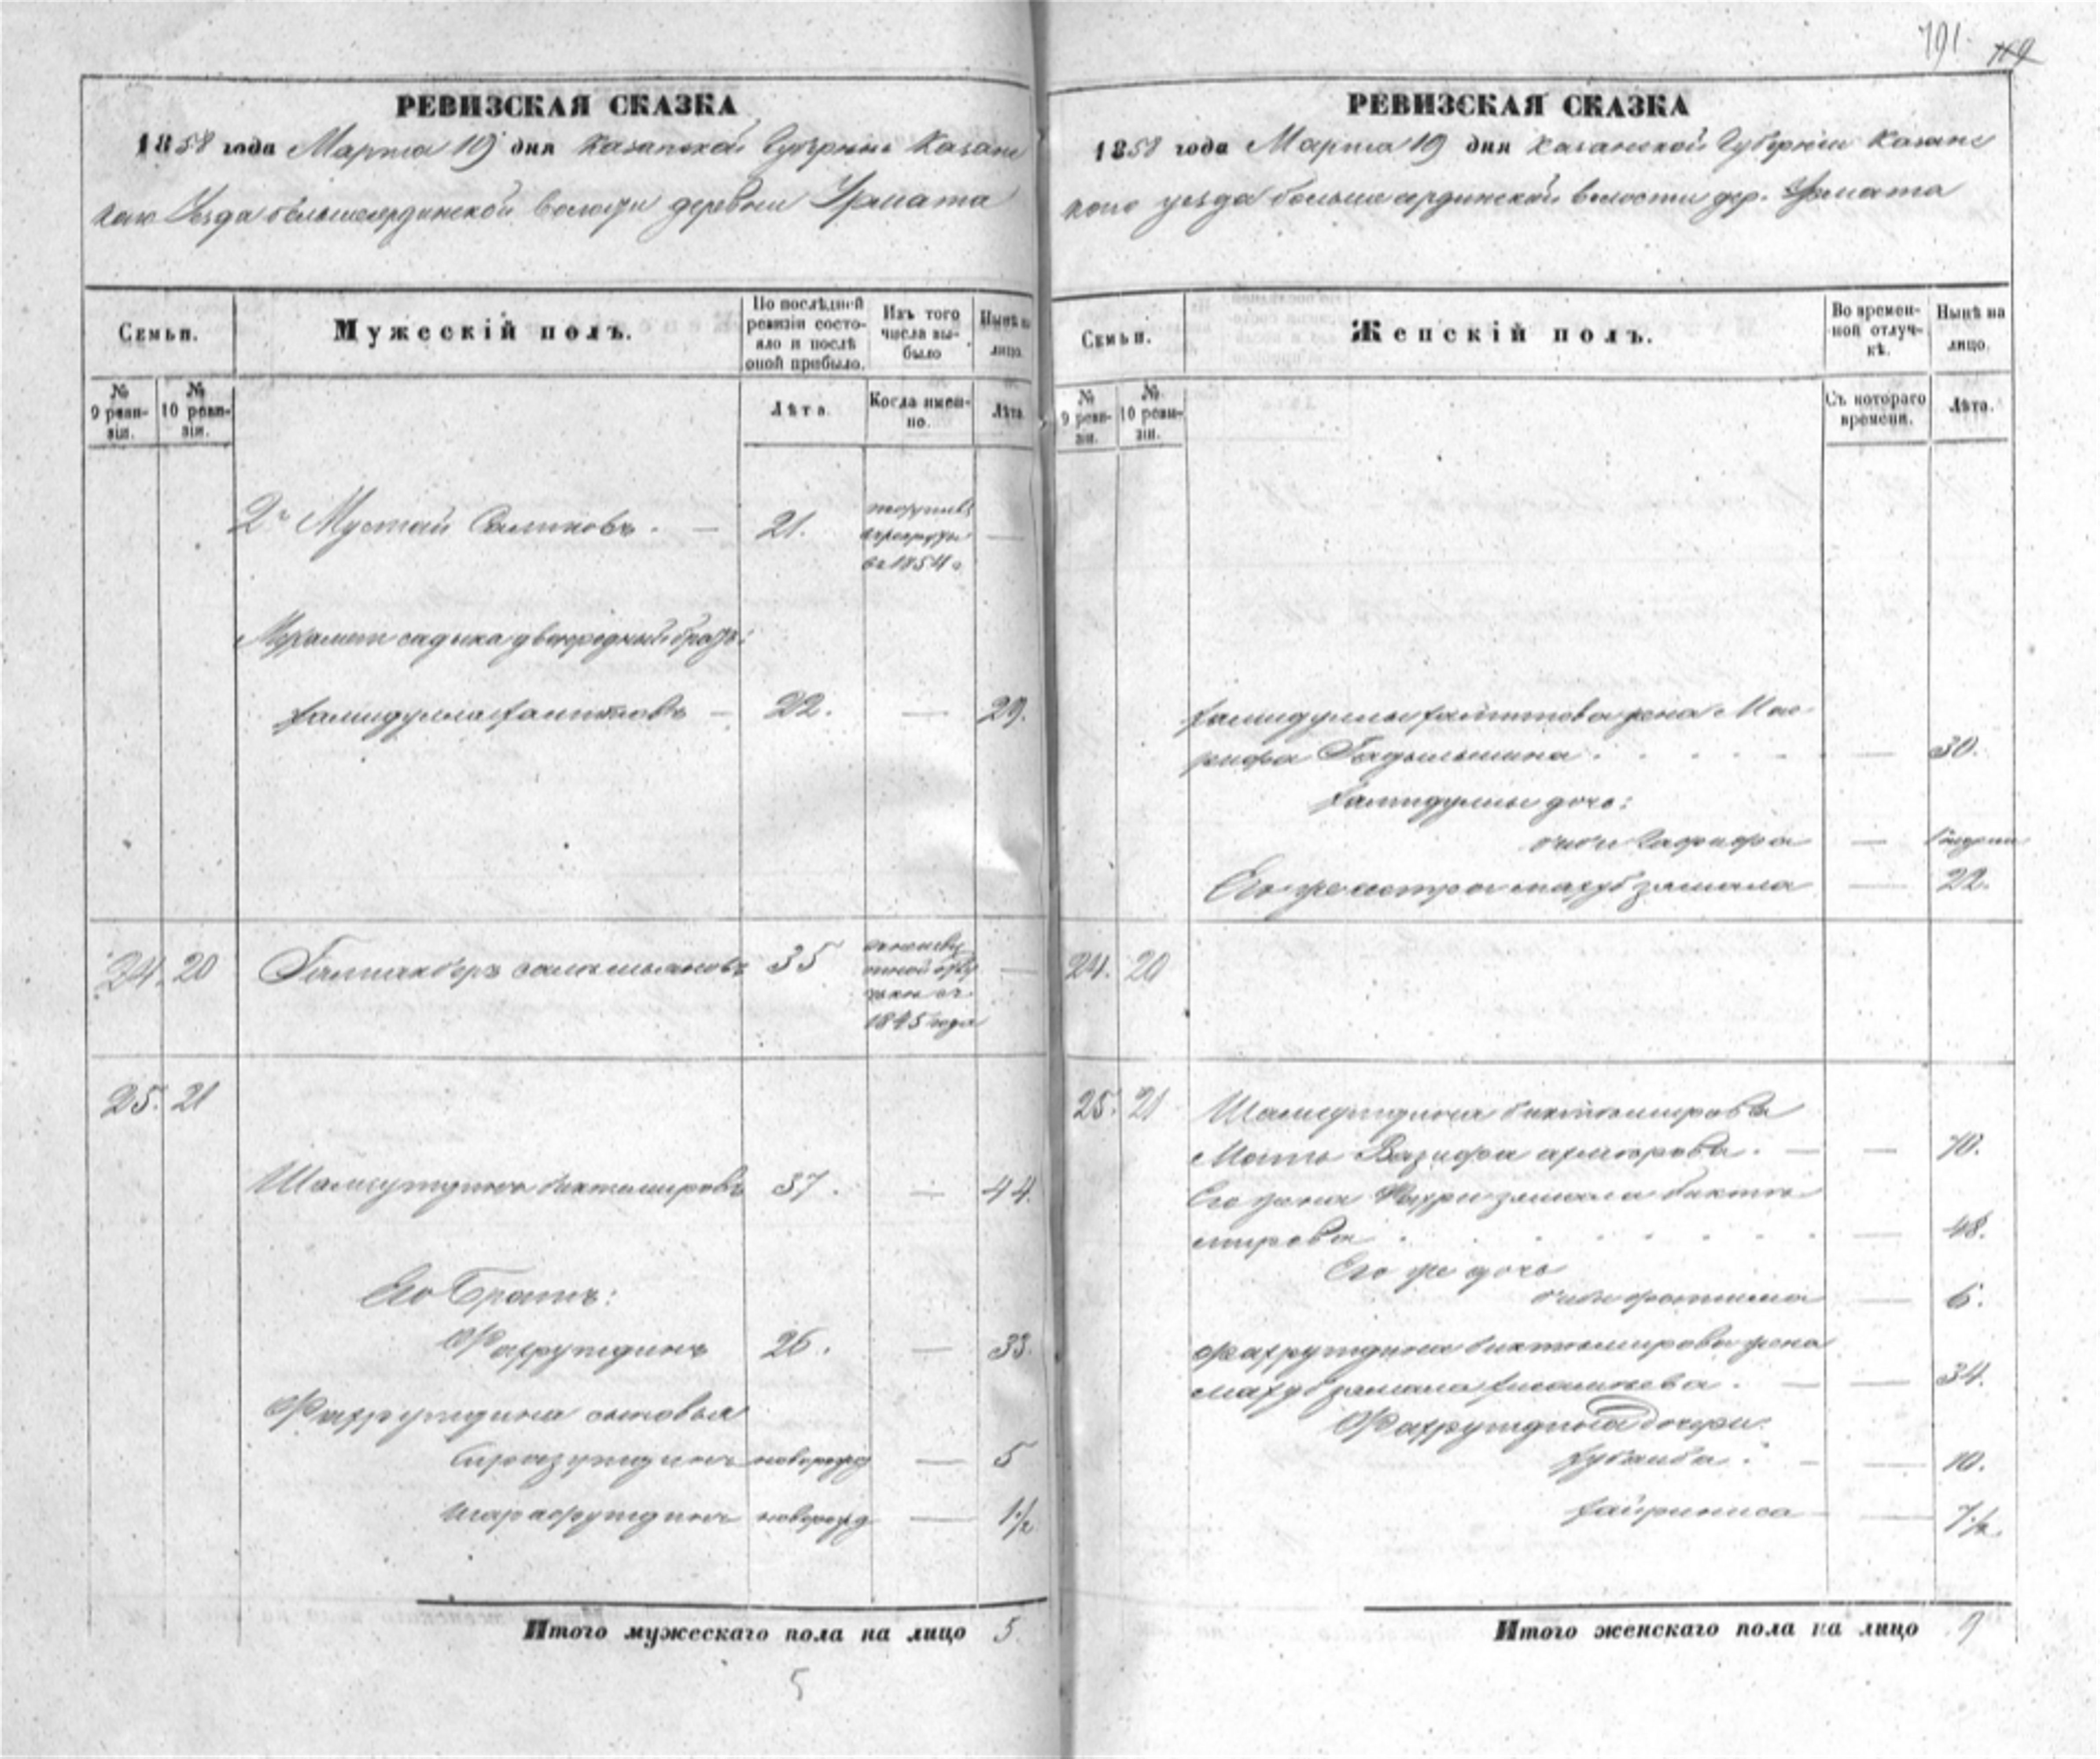 791. 169
РЕВИЗСКАЯ СКАЗКА
1858 года Марта 19 дня Казанской Губернии Казанс
каго Уезда большеатрдинской волости деревни Урмата
Семьи.
Мужескій полъ.
По послѣдней ревизіи состояло и послѣ оной прибыло.
Изъ того числа выбыло
Нынѣ на лицо.
№ 9 ревизіи.
№ 10 ревизіи.
Лѣта.
Когда именно.
Лѣта.
2й Мустай Салиховъ. — 21.
въ 1854 г. —
Мухамет садыка двоюродный братъ:
Хамидулла Хаиттовъ — 22. — 29.
24. 20 35
1845 года —
25. 21
Шамсутдинъ биктимировъ 37. — 44.
Его Братъ:
Фахрутдинъ 26. — 33.
Фахрутдина сыновья
Сиразутдинъ новорожд — 5
Шарафутдинъ новорожд — 1 1/2
Итого мужескаго пола на лицо 5.
5
РЕВИЗСКАЯ СКАЗКА
1858 года Марта 19 дня Казанской Губерніи Казанс
каго уезда волости дер. Урмата
Семьи.
Женскій полъ.
Во временной отлучкѣ.
Нынѣ на лицо.
№ 9 ревизіи.
№ 10 ревизіи.
Съ котораго времени.
Лѣта.
Хамидуллы Хаиттова жена
— 30.
Хамидуллы дочь:
Гафифа —
Его же сестра махубзямала — 22.
24. 20
25. 21 Шамсутдина биктимирова
Мать Вазифа — — 70.
Его жена Фахризямала бикти
мирова — 48.
Его же дочь
фатима — 6.
Фахрутдина биктимирова жена
махубзямала — — 34.
Фахрутдина дочери:
Хубаиба. — — 10.
Хайриниса — 7 1/2
Итого женскаго пола на лицо 9